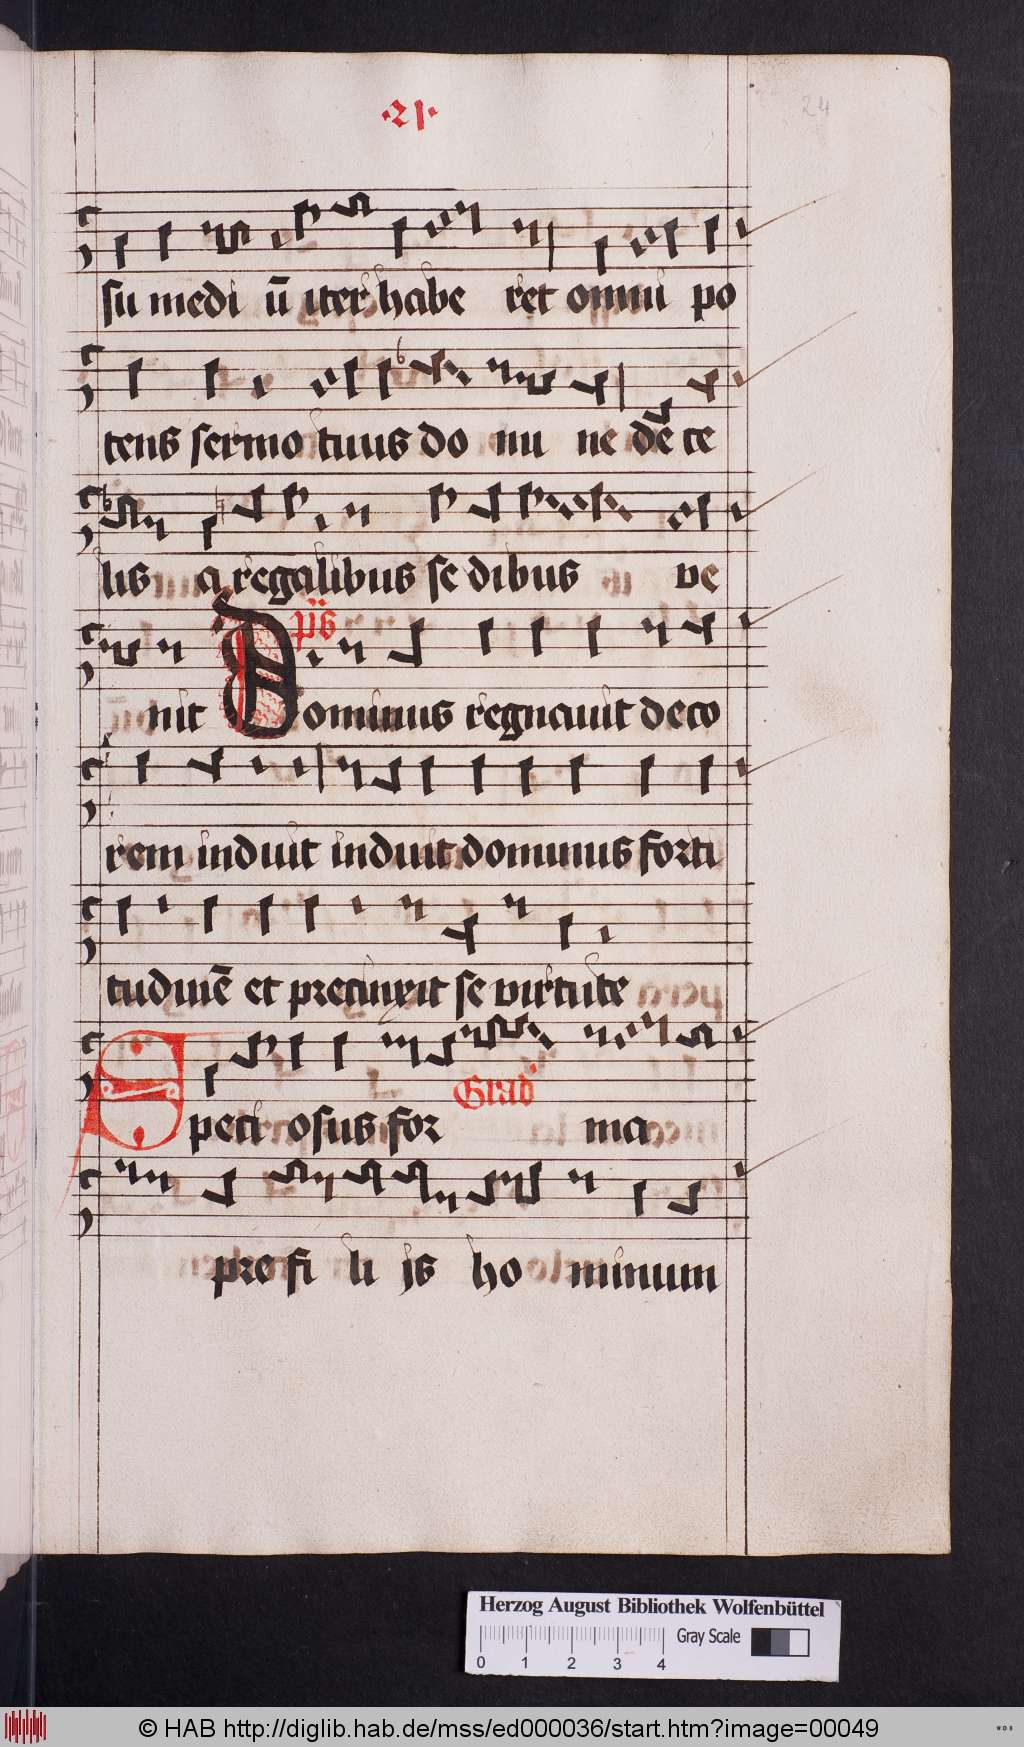 ·21·
24
su medi ū iter habe ret omni po
tens sermo tuus do nu ne dē ce
lis a regalibus se dibus ve
p̄s
nit Dominus regnavit deco
rem induit induit dominus forti
tudinē et precinxit se virtute
Grad'
Speci osus for ma
pre fi li js ho minum
Herzog August Bibliothek Wolfenbüttel
Gray Scale
0 1 2 3 4
© HAB http://diglib.hab.de/mss/ed000036/start.htm?image=00049